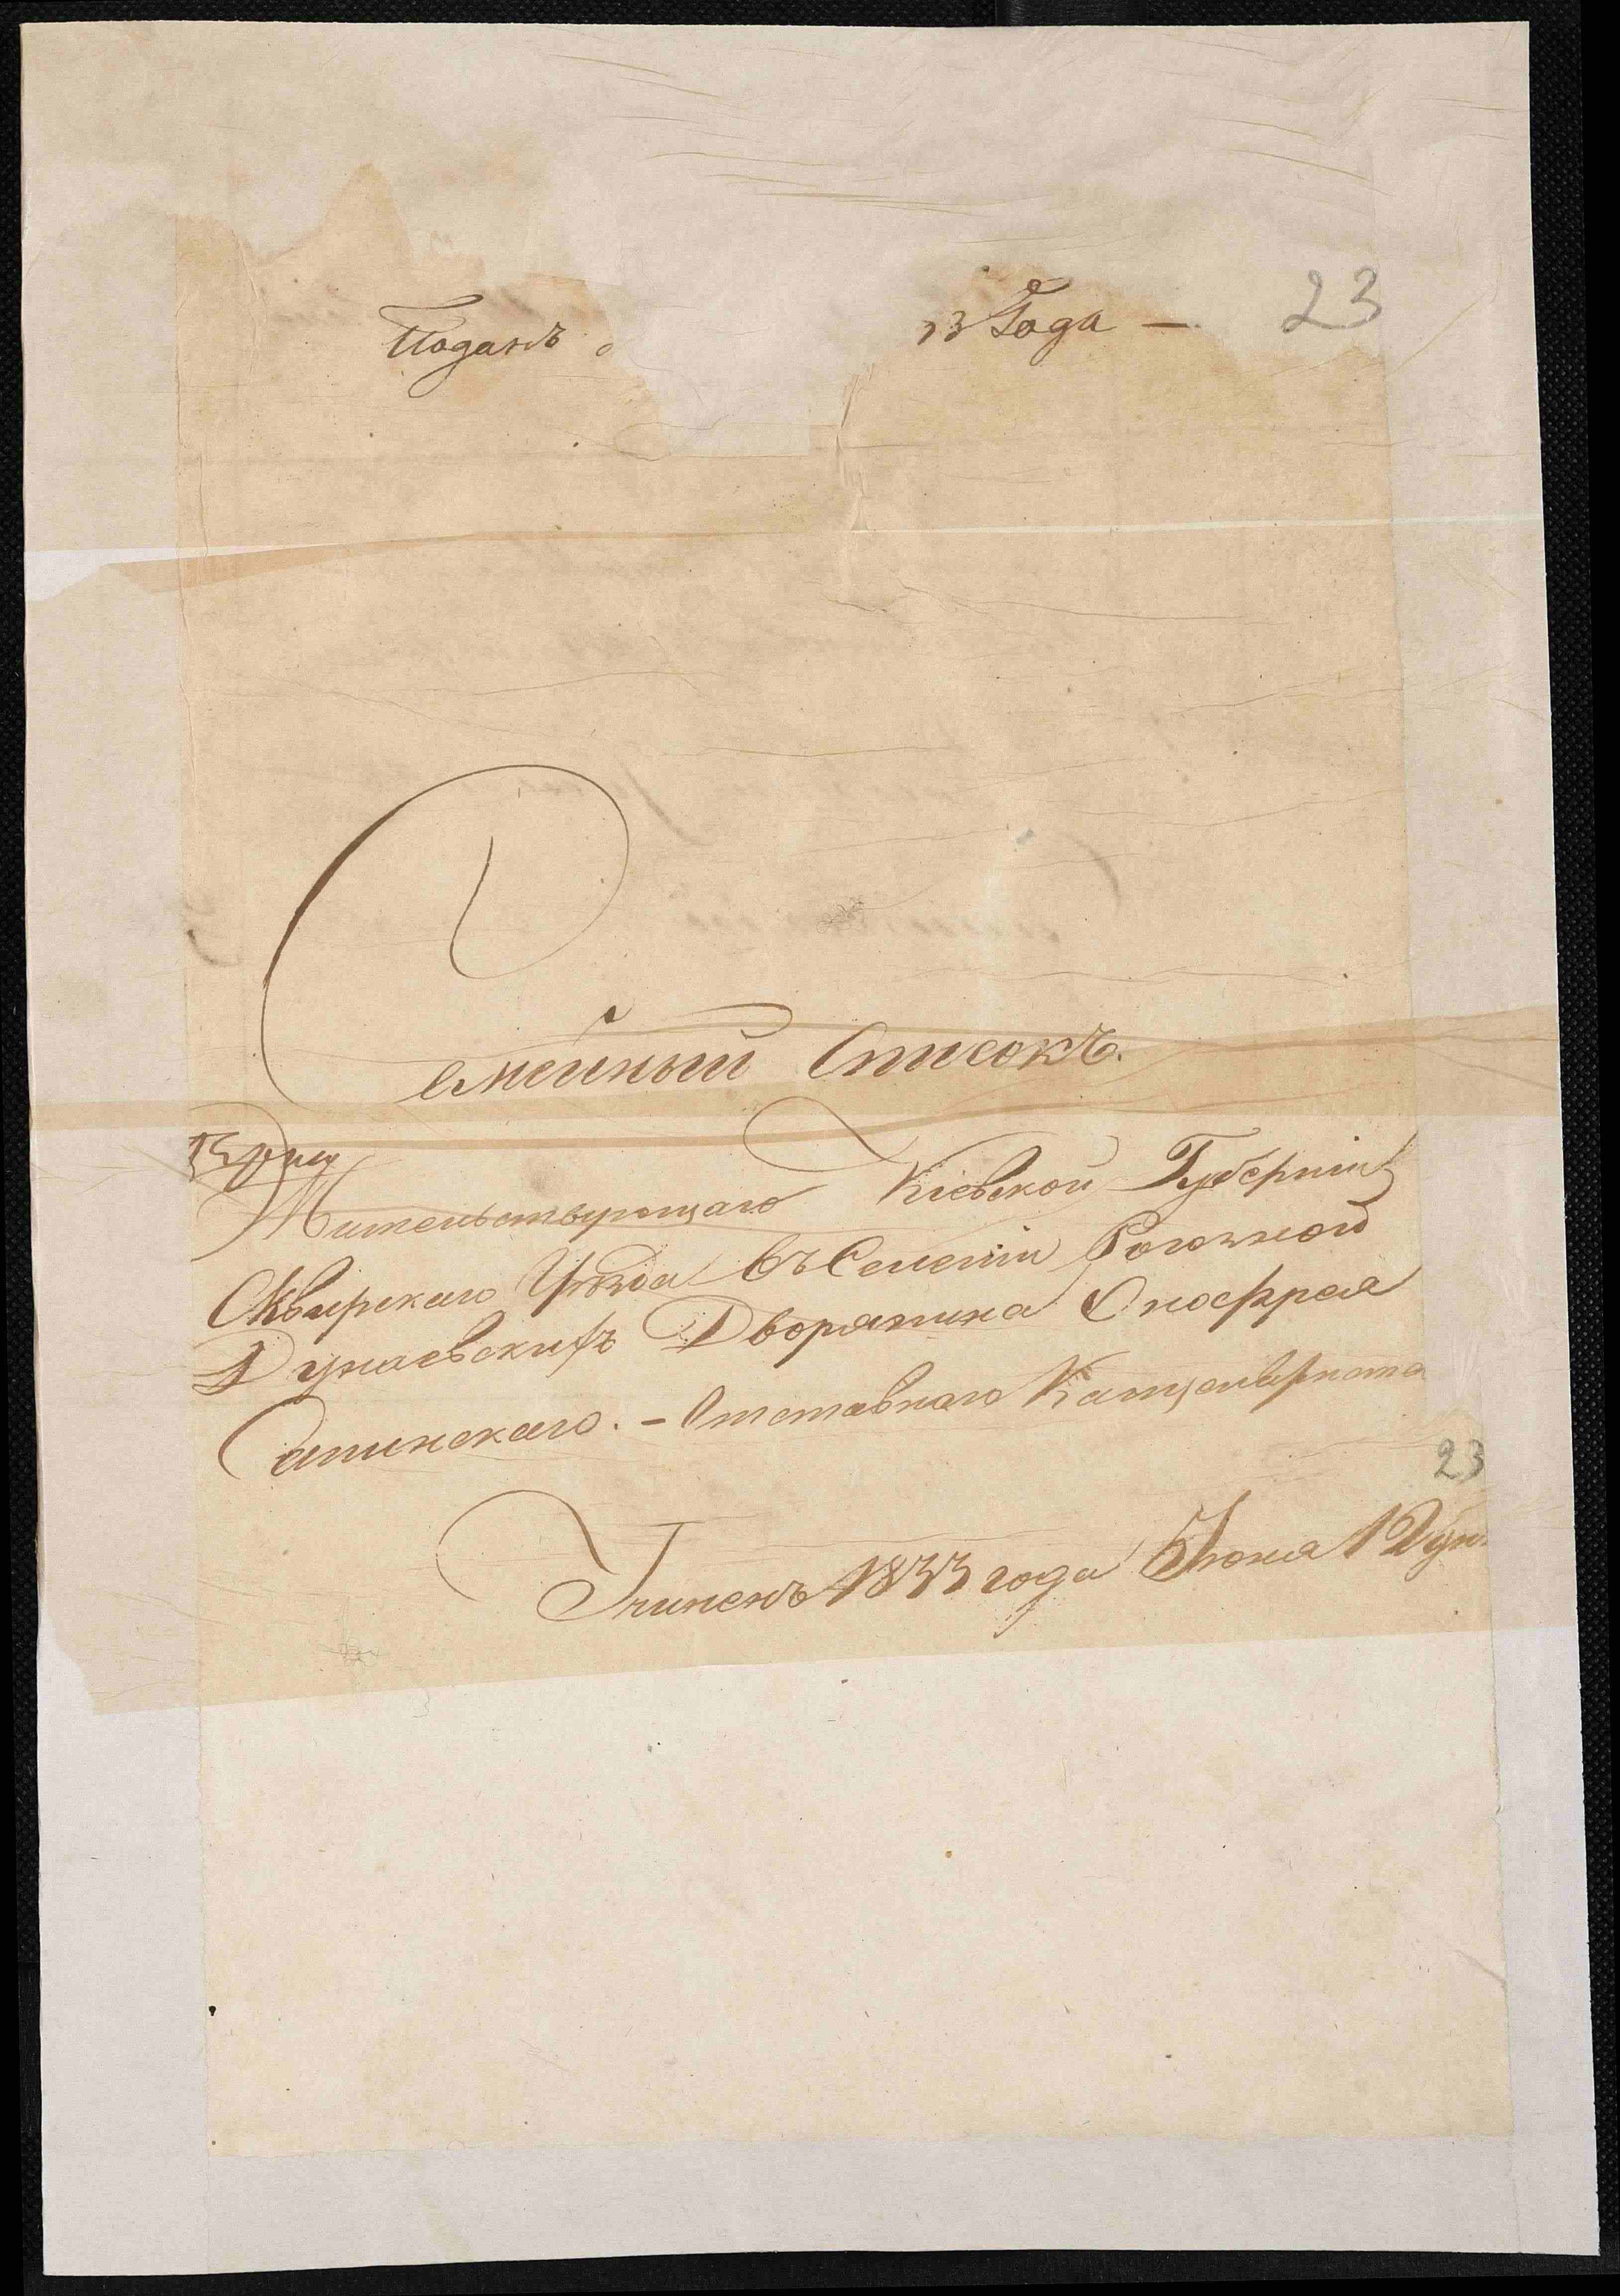 Поданъ 33 Года — 23
Семейный Списокъ.
Жительствующаго Кіевской Губерніи
Сквирскаго Уѣзда въ Селеніи Рогозной
Дунаевскихъ Дворянина Онофрея
Сапинскаго. — Отставнаго Канцеляриста
23
Учиненъ 1833 года Іюня 1 Дун